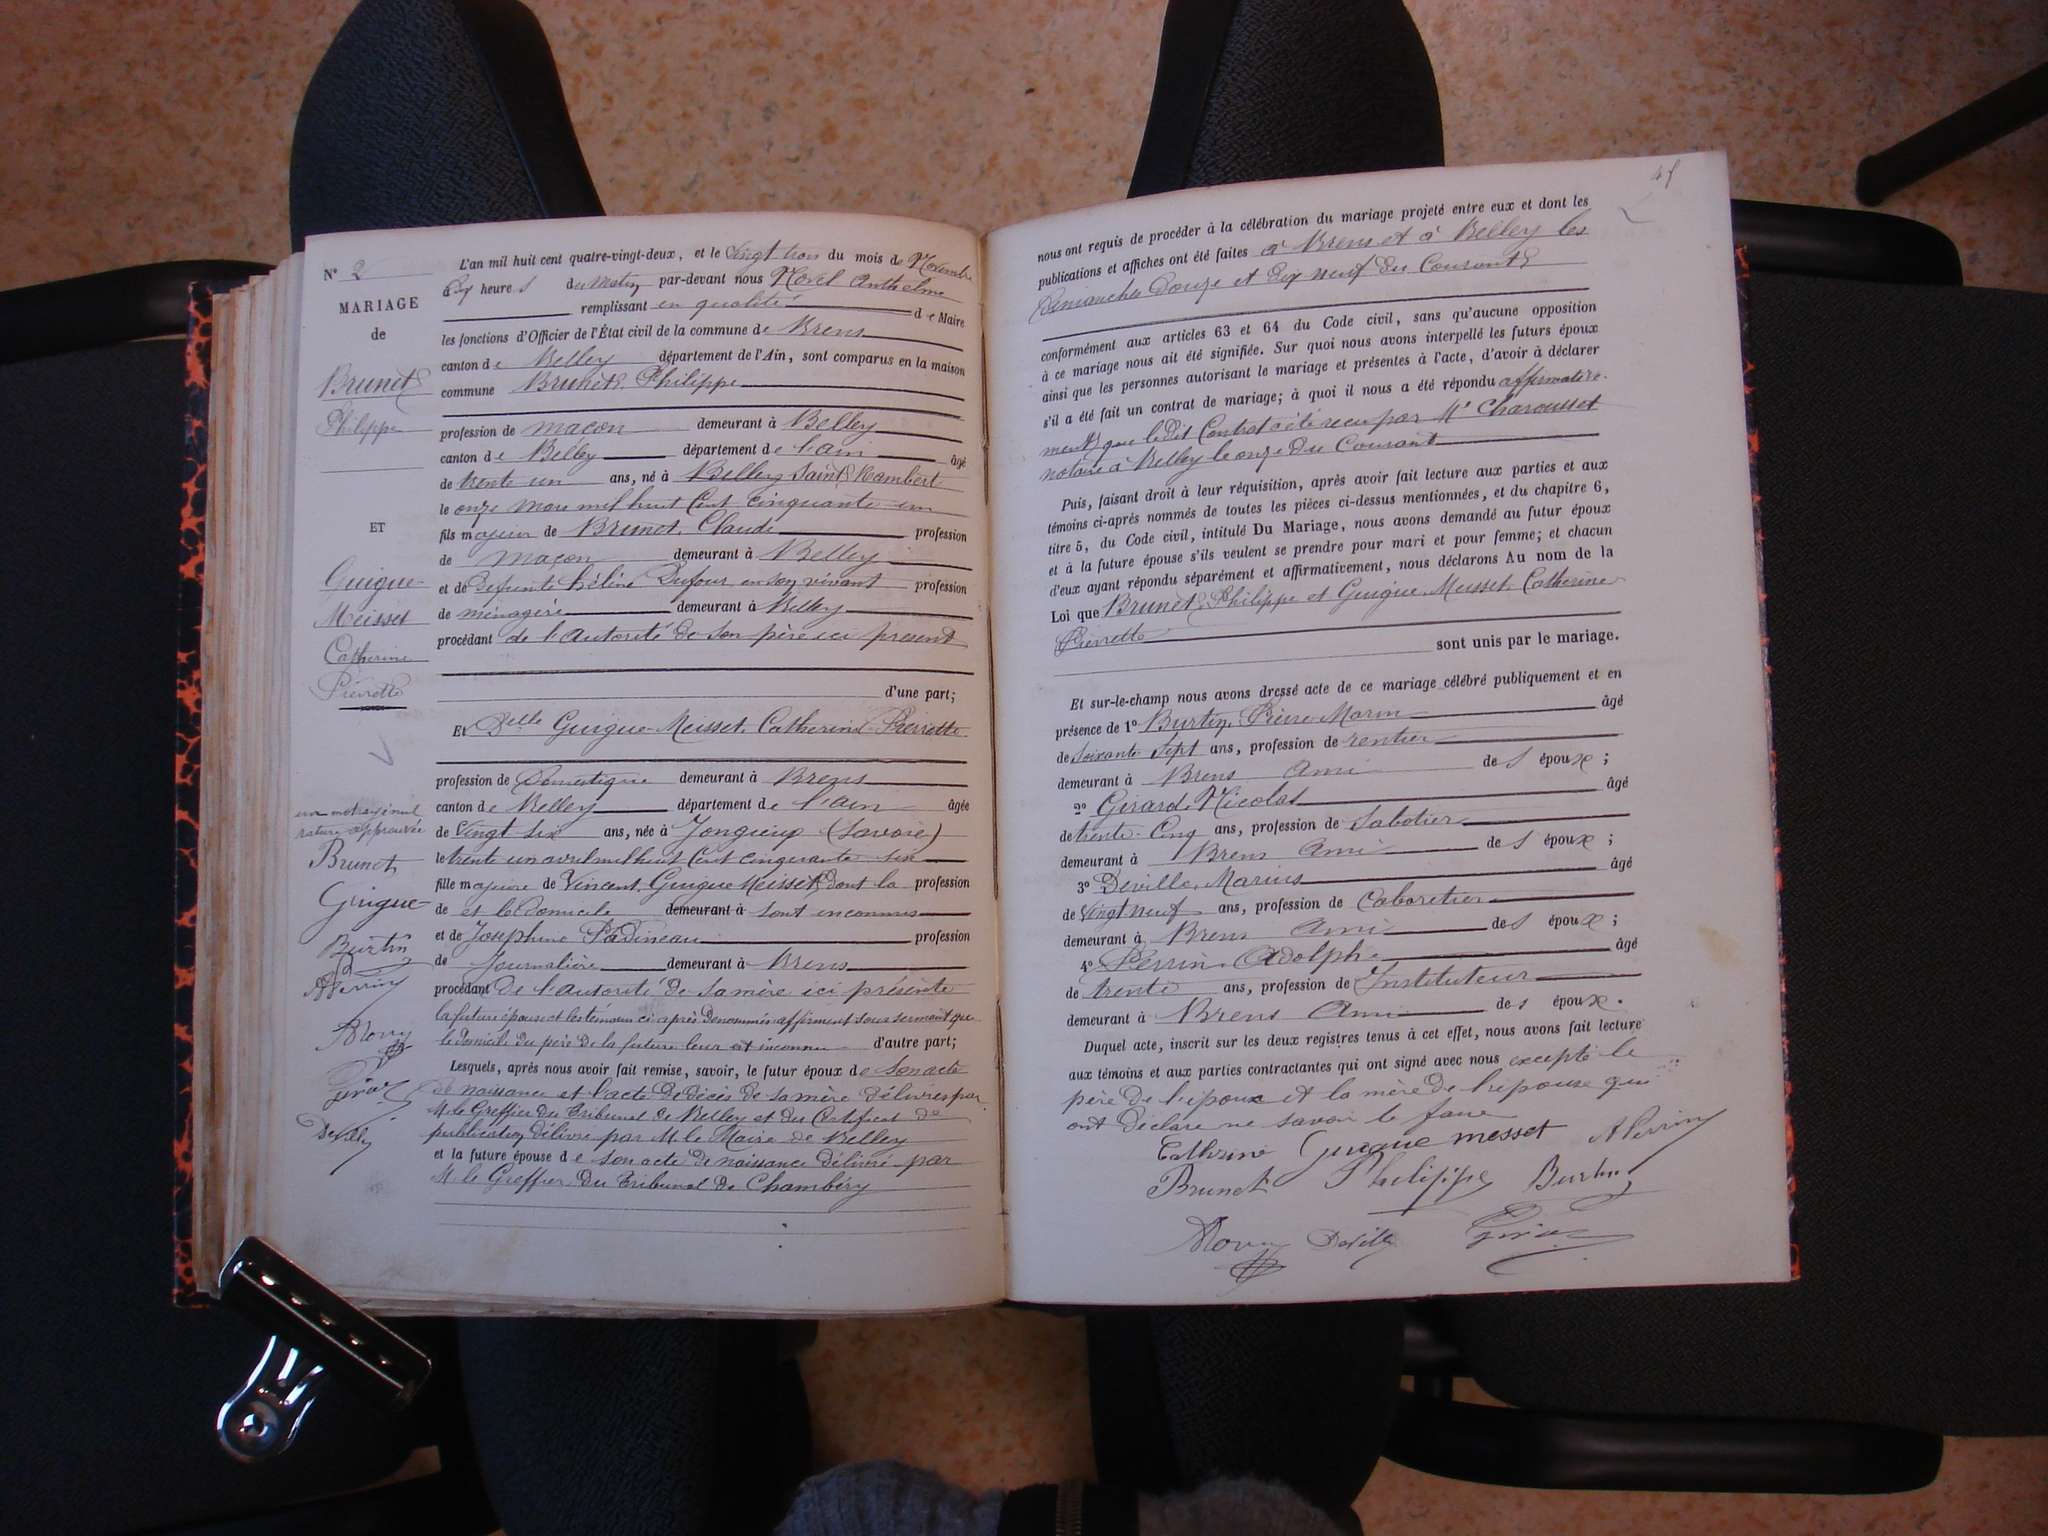 N° 2
MARIAGE
de
Brunet
Philippe
ET
Guigue
Meisset
Catherine
Pierrette
un mot rayé nul
rature approuvée
Brunet
Guigue
Burtin
A Perrin
Girar
Devill
L'an mil huit cent quatre-vingt-deux, et le vingt trois du mois de Novembre
à heures du Matin par-devant nous Anthelme
remplissant en qualité de Maire
les fonctions d'Officier de l'État civil de la commune de Brens
canton de Belley département de l'Ain, sont comparus en la maison
commune Brunet Philippe
profession de maçon demeurant à Belley
canton de Belley département de l'ain âgé
de trente un ans, né à Belley Saint Rambert
le onze mars mil huit Cent cinquante un
fils majeur de Brunet Claude profession
de maçon demeurant à Belley
et de Defunte hélène Dufour en son vivant profession
de ménagère demeurant à Belley
procédant de l'autorité de son père ici présent
d'une part;
Et Delle Guigue-Meisset Catherine Pierrette
profession de Domestique demeurant à Brens
canton de Belley département de l'ain âgée
de Vingt six ans, née à Jongieux (Savoie)
le trente un avril mil huit Cent cinquante six
fille majeure de Vincent Guigue Meisset dont la profession
de et le Domicile demeurant à sont inconnus
et de Josephine Padineau profession
de Journalière demeurant à Brens
procédant De l'autorité de sa mère ici présente
la future épouse et les témoins ci-après Denommés affirment sous serment que
le domicile du père De la future leur est inconnu d'autre part;
Lesquels, après nous avoir fait remise, savoir, le futur époux de son acte
de naissance et l'acte De décès de sa mère Délivrés par
M. le Greffier du Tribunal de Belley et du Certificat de
publication Délivré par M. le Maire de Belley
et la future épouse de son acte De naissance Délivré par
M. le Greffier Du Tribunal De Chambéry
nous ont requis de procéder à la célébration du mariage projeté entre eux et dont les
publications et affiches ont été faites à Brens et à Belley les
Dimanches Douze et Dix neuf du Courant
conformément aux articles 63 et 64 du Code civil, sans qu'aucune opposition
à ce mariage nous ait été signifiée. Sur quoi nous avons interpellé les futurs époux
ainsi que les personnes autorisant le mariage et présentes à l'acte, d'avoir à déclarer
s'il a été fait un contrat de mariage; à quoi il nous a été répondu affirmative-
ment que le dit Contrat a été reçu par Me Charousset
notaire à Belley le onze Du Courant
Puis, faisant droit à leur réquisition, après avoir fait lecture aux parties et aux
témoins ci-après nommés de toutes les pièces ci-dessus mentionnées, et du chapitre 6,
titre 5, du Code civil, intitulé Du Mariage, nous avons demandé au futur époux
et à la future épouse s'ils veulent se prendre pour mari et pour femme; et chacun
d'eux ayant répondu séparément et affirmativement, nous déclarons Au nom de la
Loi que Brunet Philippe et Guigue Meisset Catherine
Pierrette sont unis par le mariage.
Et sur-le-champ nous avons dressé acte de ce mariage célébré publiquement et en
présence de 1° Burtin, Pierre Marin âgé
de Soixante Sept ans, profession de rentier
demeurant à Brens Ami des époux;
2° Girard, Nicolas âgé
de trente-Cinq ans, profession de Sabotier
demeurant à Brens Ami des époux;
3° Deville, Marius âgé
de Vingt neuf ans, profession de Cabaretier
demeurant à Brens Ami des époux;
4° Perrin Adolphe âgé
de trente ans, profession de Instituteur
demeurant à Brens Ami des époux.
Duquel acte, inscrit sur les deux registres tenus à cet effet, nous avons fait lecture
aux témoins et aux parties contractantes qui ont signé avec nous excepté le
père de l'époux et la mère De l'épouse qui
ont Déclaré ne savoir le faire
Catherine Guigue messet A Perrin
Brunet Philippe Burtin
Deville Girar